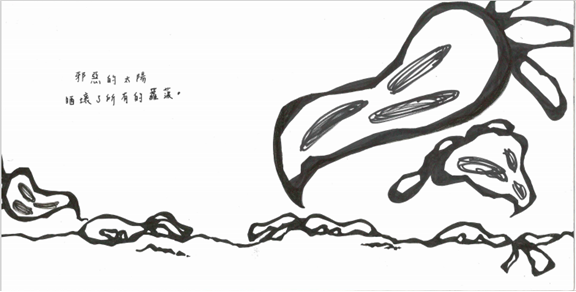 邪惡的太陽
晒壞了所有的蘿蔔。